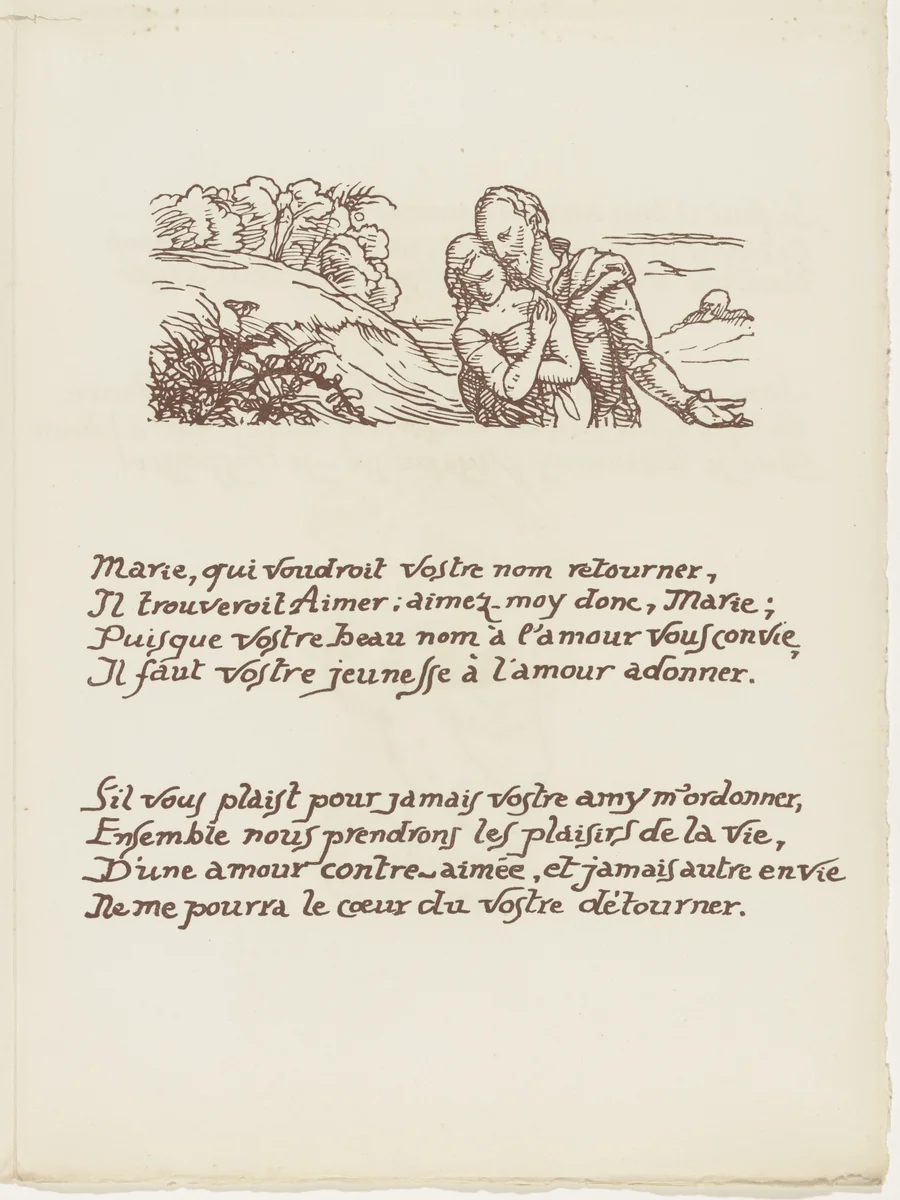 Marie, qui voudroit vostre nom retourner,
Il trouveroit Aimer : aimez-moy donc, Marie ;
Puisque vostre beau nom à l'amour vous convie,
Il faut vostre jeunesse à l'amour adonner.
S'il vous plaist pour jamais vostre amy m'ordonner,
Ensemble nous prendrons les plaisirs de la vie,
D'une amour contre-aimée, et jamais autre envie
Ne me pourra le cœur du vostre détourner.